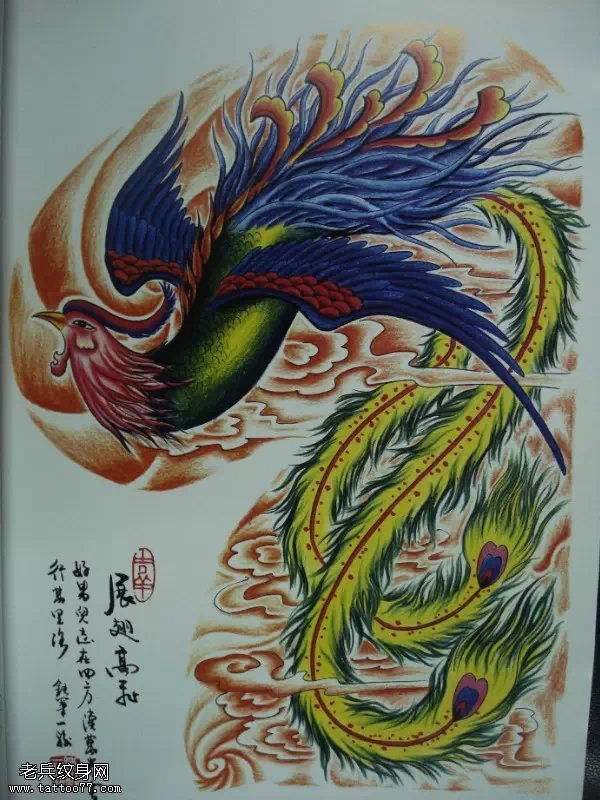 展翅高飞
好男兒志在四方讀萬
行萬里路
老兵纹身网
www.tattoo77.com